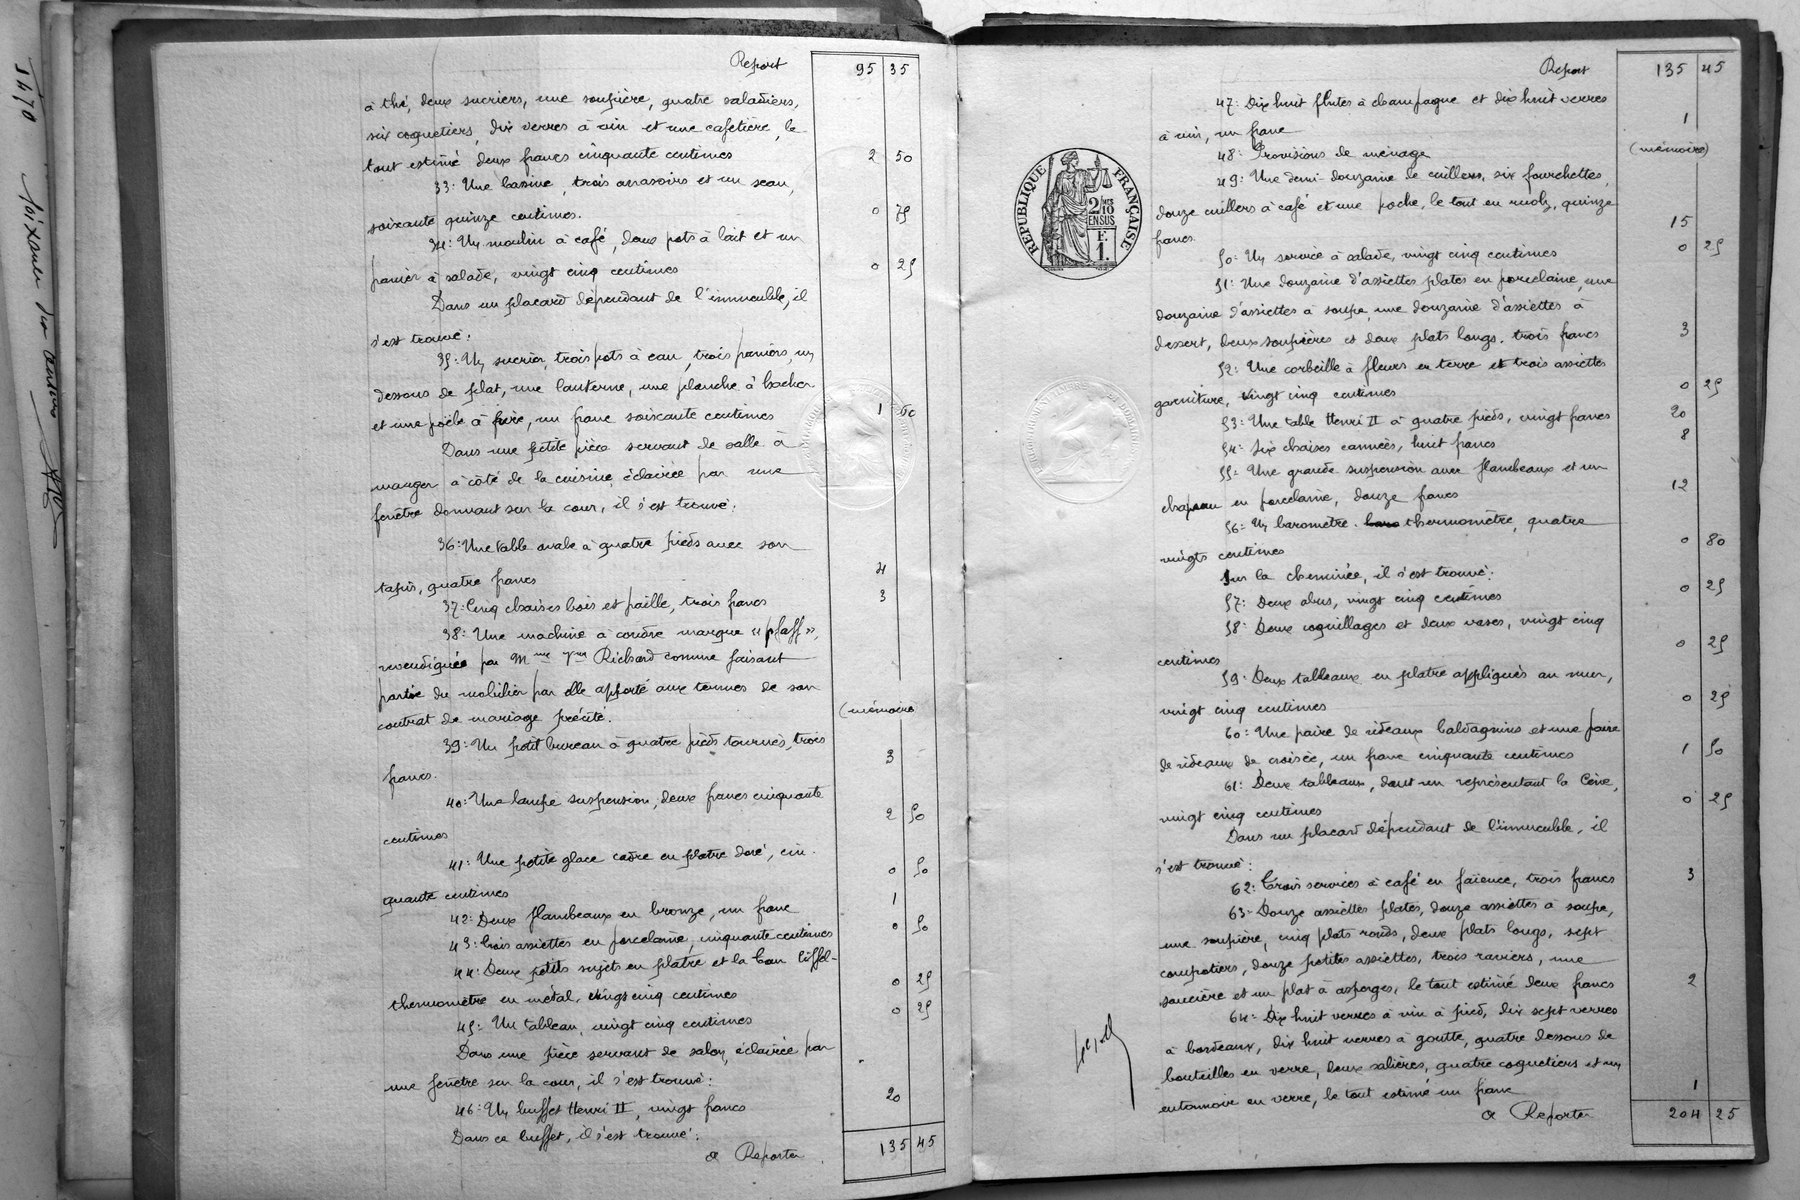 Report 95 35
à thé, deux sucriers, une soupière, quatre saladiers,
six coquetiers, dix verres à vin et une cafetière, le
tout estimé deux francs cinquante centimes 2 50
33: Une bassine, trois arrosoirs et un seau,
soixante quinze centimes. 0 75
34: Un moulin à café, deux pots à lait et un
panier à salade, vingt cinq centimes 0 25
Dans un placard dépendant de l'immeuble, il
s'est trouvé:
35: Un sucrier, trois pots à eau, trois paniers, un
dessous de plat, une lanterne, une planche à hacher
et une poêle à frire, un franc soixante centimes 1 60
Dans une petite pièce servant de salle à
manger à côté de la cuisine, éclairée par une
fenêtre donnant sur la cour, il s'est trouvé:
36: Une table ovale à quatre pieds avec son
tapis, quatre francs 4
37: Cinq chaises bois et paille, trois francs 3
38: Une machine à coudre marque «pfaff»,
revendiquée par Mme Vve Richard comme faisant
partie du mobilier par elle apporté aux termes de son
contrat de mariage précité. (mémoire
39: Un petit bureau à quatre pieds tournés, trois
francs. 3
40: Une lampe suspension, deux francs cinquante
centimes 2 50
41: Une petite glace cadre en platre doré, cin-
quante centimes 0 50
42: Deux flambeaux en bronze, un franc 1
43: Trois assiettes en porcelaine, cinquante centimes 0 50
44: Deux petits sujets en platre et la Tour Eiffel-
thermomètre en métal, vingt cinq centimes 0 25
45: Un tableau, vingt cinq centimes 0 25
Dans une pièce servant de salon, éclairée par
une fenêtre sur la cour, il s'est trouvé:
46: Un buffet Henri II, vingt francs 20
Dans ce buffet, il s'est trouvé:
A Reporter 135 45
Report 135 45
47: Dix huit flutes à champagne et dix huit verres
à vin, un franc 1
48: Provisions de ménage (mémoire)
49: Une demi-douzaine de cuillers, six fourchettes,
douze cuillers à café et une poche, le tout en ruolz, quinze
francs 15
50: Un service à salade, vingt cinq centimes 0 25
51: Une douzaine d'assiettes plates en porcelaine, une
douzaine d'assiettes à soupe, une douzaine d'assiettes à
dessert, deux soupières et deux plats longs, trois francs 3
52: Une corbeille à fleurs en terre et trois assiettes
garniture, vingt cinq centimes 0 25
53: Une table Henri II à quatre pieds, vingt francs 20
54: Six chaises cannées, huit francs 8
55: Une grande suspension avec flambeaux et un
chapeau en porcelaine, douze francs 12
56: Un baromètre thermomètre, quatre
vingts centimes 0 80
Sur la cheminée, il s'est trouvé:
57: Deux obus, vingt cinq centimes 0 25
58: Deux coquillages et deux vases, vingt cinq
centimes 0 25
59: Deux tableaux en platre appliqués au mur,
vingt cinq centimes 0 25
60: Une paire de rideaux baldaquins et une paire
de rideaux de croisée, un franc cinquante centimes 1 50
61: Deux tableaux, dont un représentant la Cène,
vingt cinq centimes 0 25
Dans un placard dépendant de l'immeuble, il
s'est trouvé:
62: Trois services à café en faïence, trois francs 3
63: Douze assiettes plates, douze assiettes à soupe,
une soupière, cinq plats ronds, deux plats longs, sept
compotiers, douze petites assiettes, trois raviers, une
saucière et un plat à asperges, le tout estimé deux francs 2
64: Dix huit verres à vin à pied, dix sept verres
à bordeaux, dix huit verres à goutte, quatre dessous de
bouteilles en verre, deux salières, quatre coquetiers et un
entonnoir en verre, le tout estimé un franc 1
A Reporter 204 25
RÉPUBLIQUE FRANÇAISE
2/10
EN SUS
F.
1.